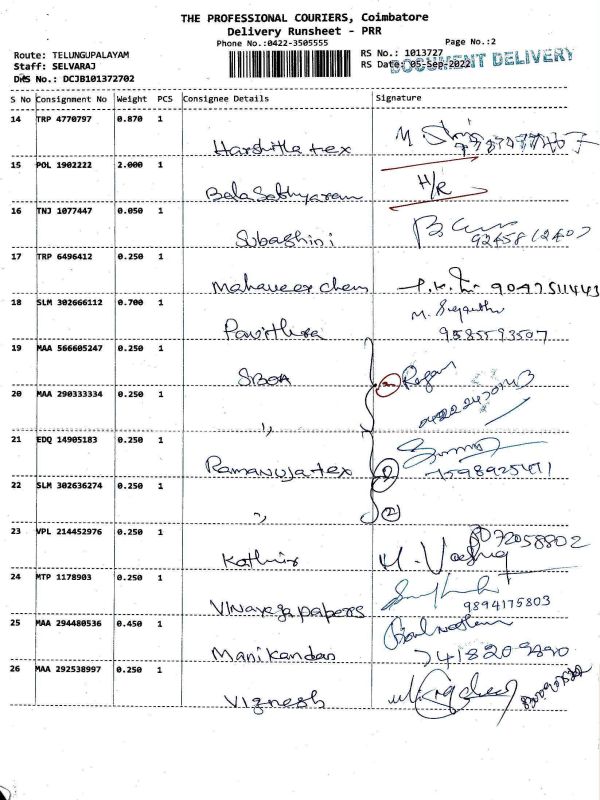 THE PROFESSIONAL COURIERS, Coimbatore
Delivery Runsheet - PRR
Phone No.:0422-3505555
Page No.:2
Route: TELUNGUPALAYAM
RS No.: 1013727
Staff: SELVARAJ
RS Date: 05-Sep-2022
DOCUMENT DELIVERY
DRS No.: DCJB101372702
S No Consignment No Weight PCS Consignee Details Signature
14 TRP 4770797 0.870 1
Harshitha tex
15 POL 1902222 2.000 1
H/R
16 TNJ 1077447 0.050 1
Subashini
17 TRP 6496412 0.250 1
Mahaveer chem
18 SLM 302666112 0.700 1
Pavithra 9585593507
19 MAA 566605247 0.250 1
SBOA
20 MAA 290333334 0.250 1
"
21 EDQ 14905183 0.250 1
Ramanuja tex 7598925471
22 SLM 302636274 0.250 1
" 2
23 VPL 214452976 0.250 1
Kathir
24 MTP 1178903 0.250 1
Vinayaga papers 9894175803
25 MAA 294480536 0.450 1
Manikandan 7418209890
26 MAA 292538997 0.250 1
Vignesh